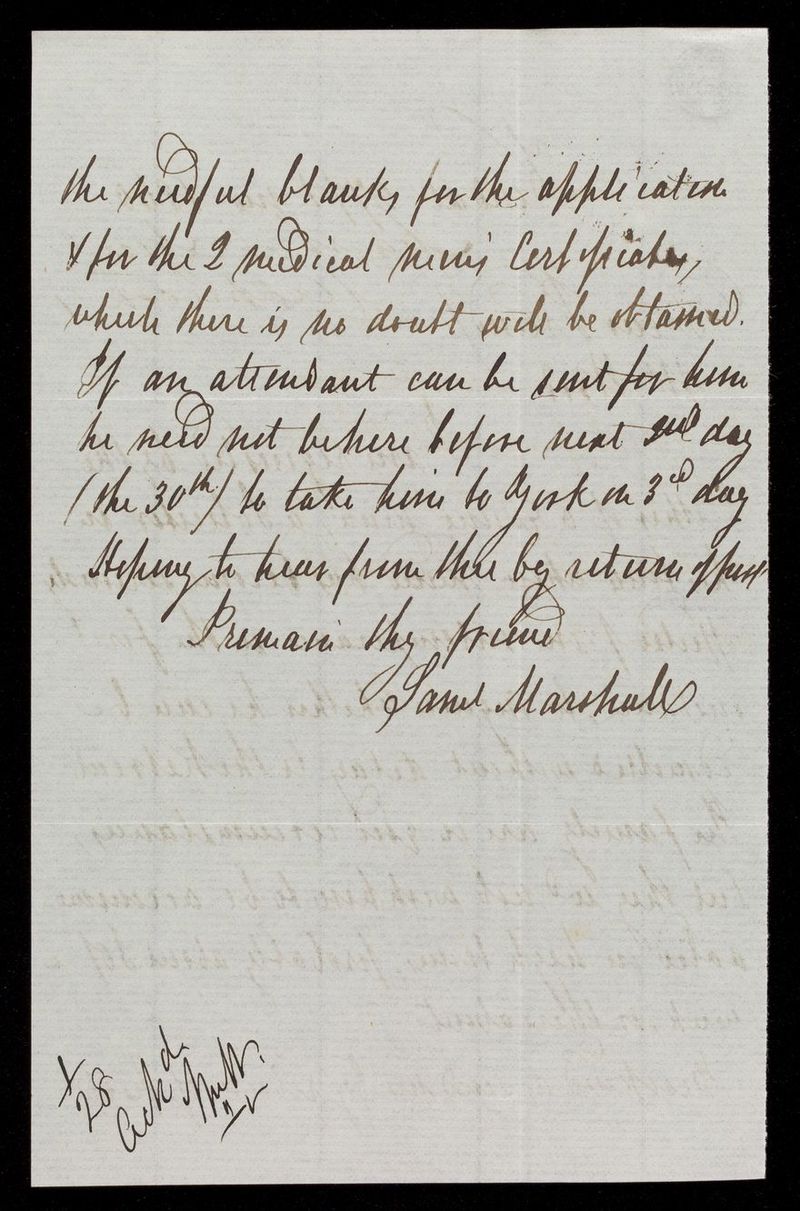 the needful blanks for the application
& for the 2 medical men's Certificates,
which there is no doubt will be obtained.
If an attendant can be sent for him
he need not be here before next 2nd day
(the 30th) to take him to York on 3rd day
Hoping to hear from thee by return of post
I remain thy friend
Saml Marshall
28
Ackd